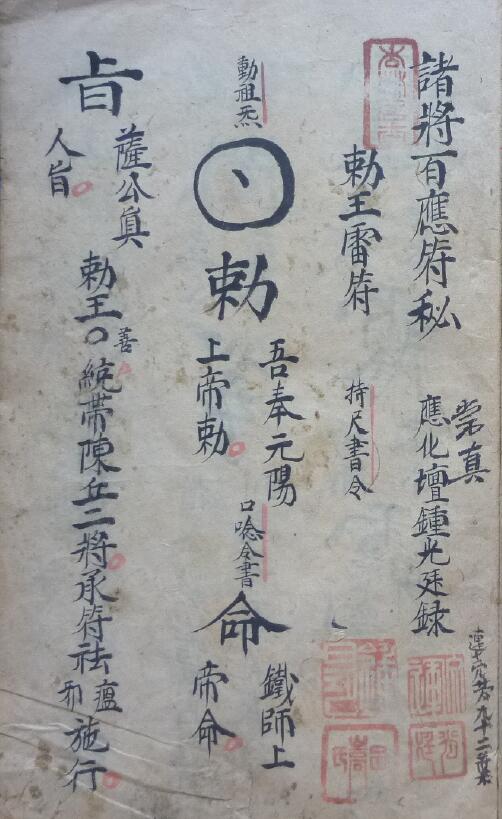 諸將百應符秘
崇真
應化壇鍾光廷録
勅王雷符
持尺書令
動祖炁
勅
吾奉元陽
上帝勅
口唸令書
命
鐵師上
帝命
旨
薩公真
人旨
勅王善○統帶陳丘二將承符祛瘟邪施行